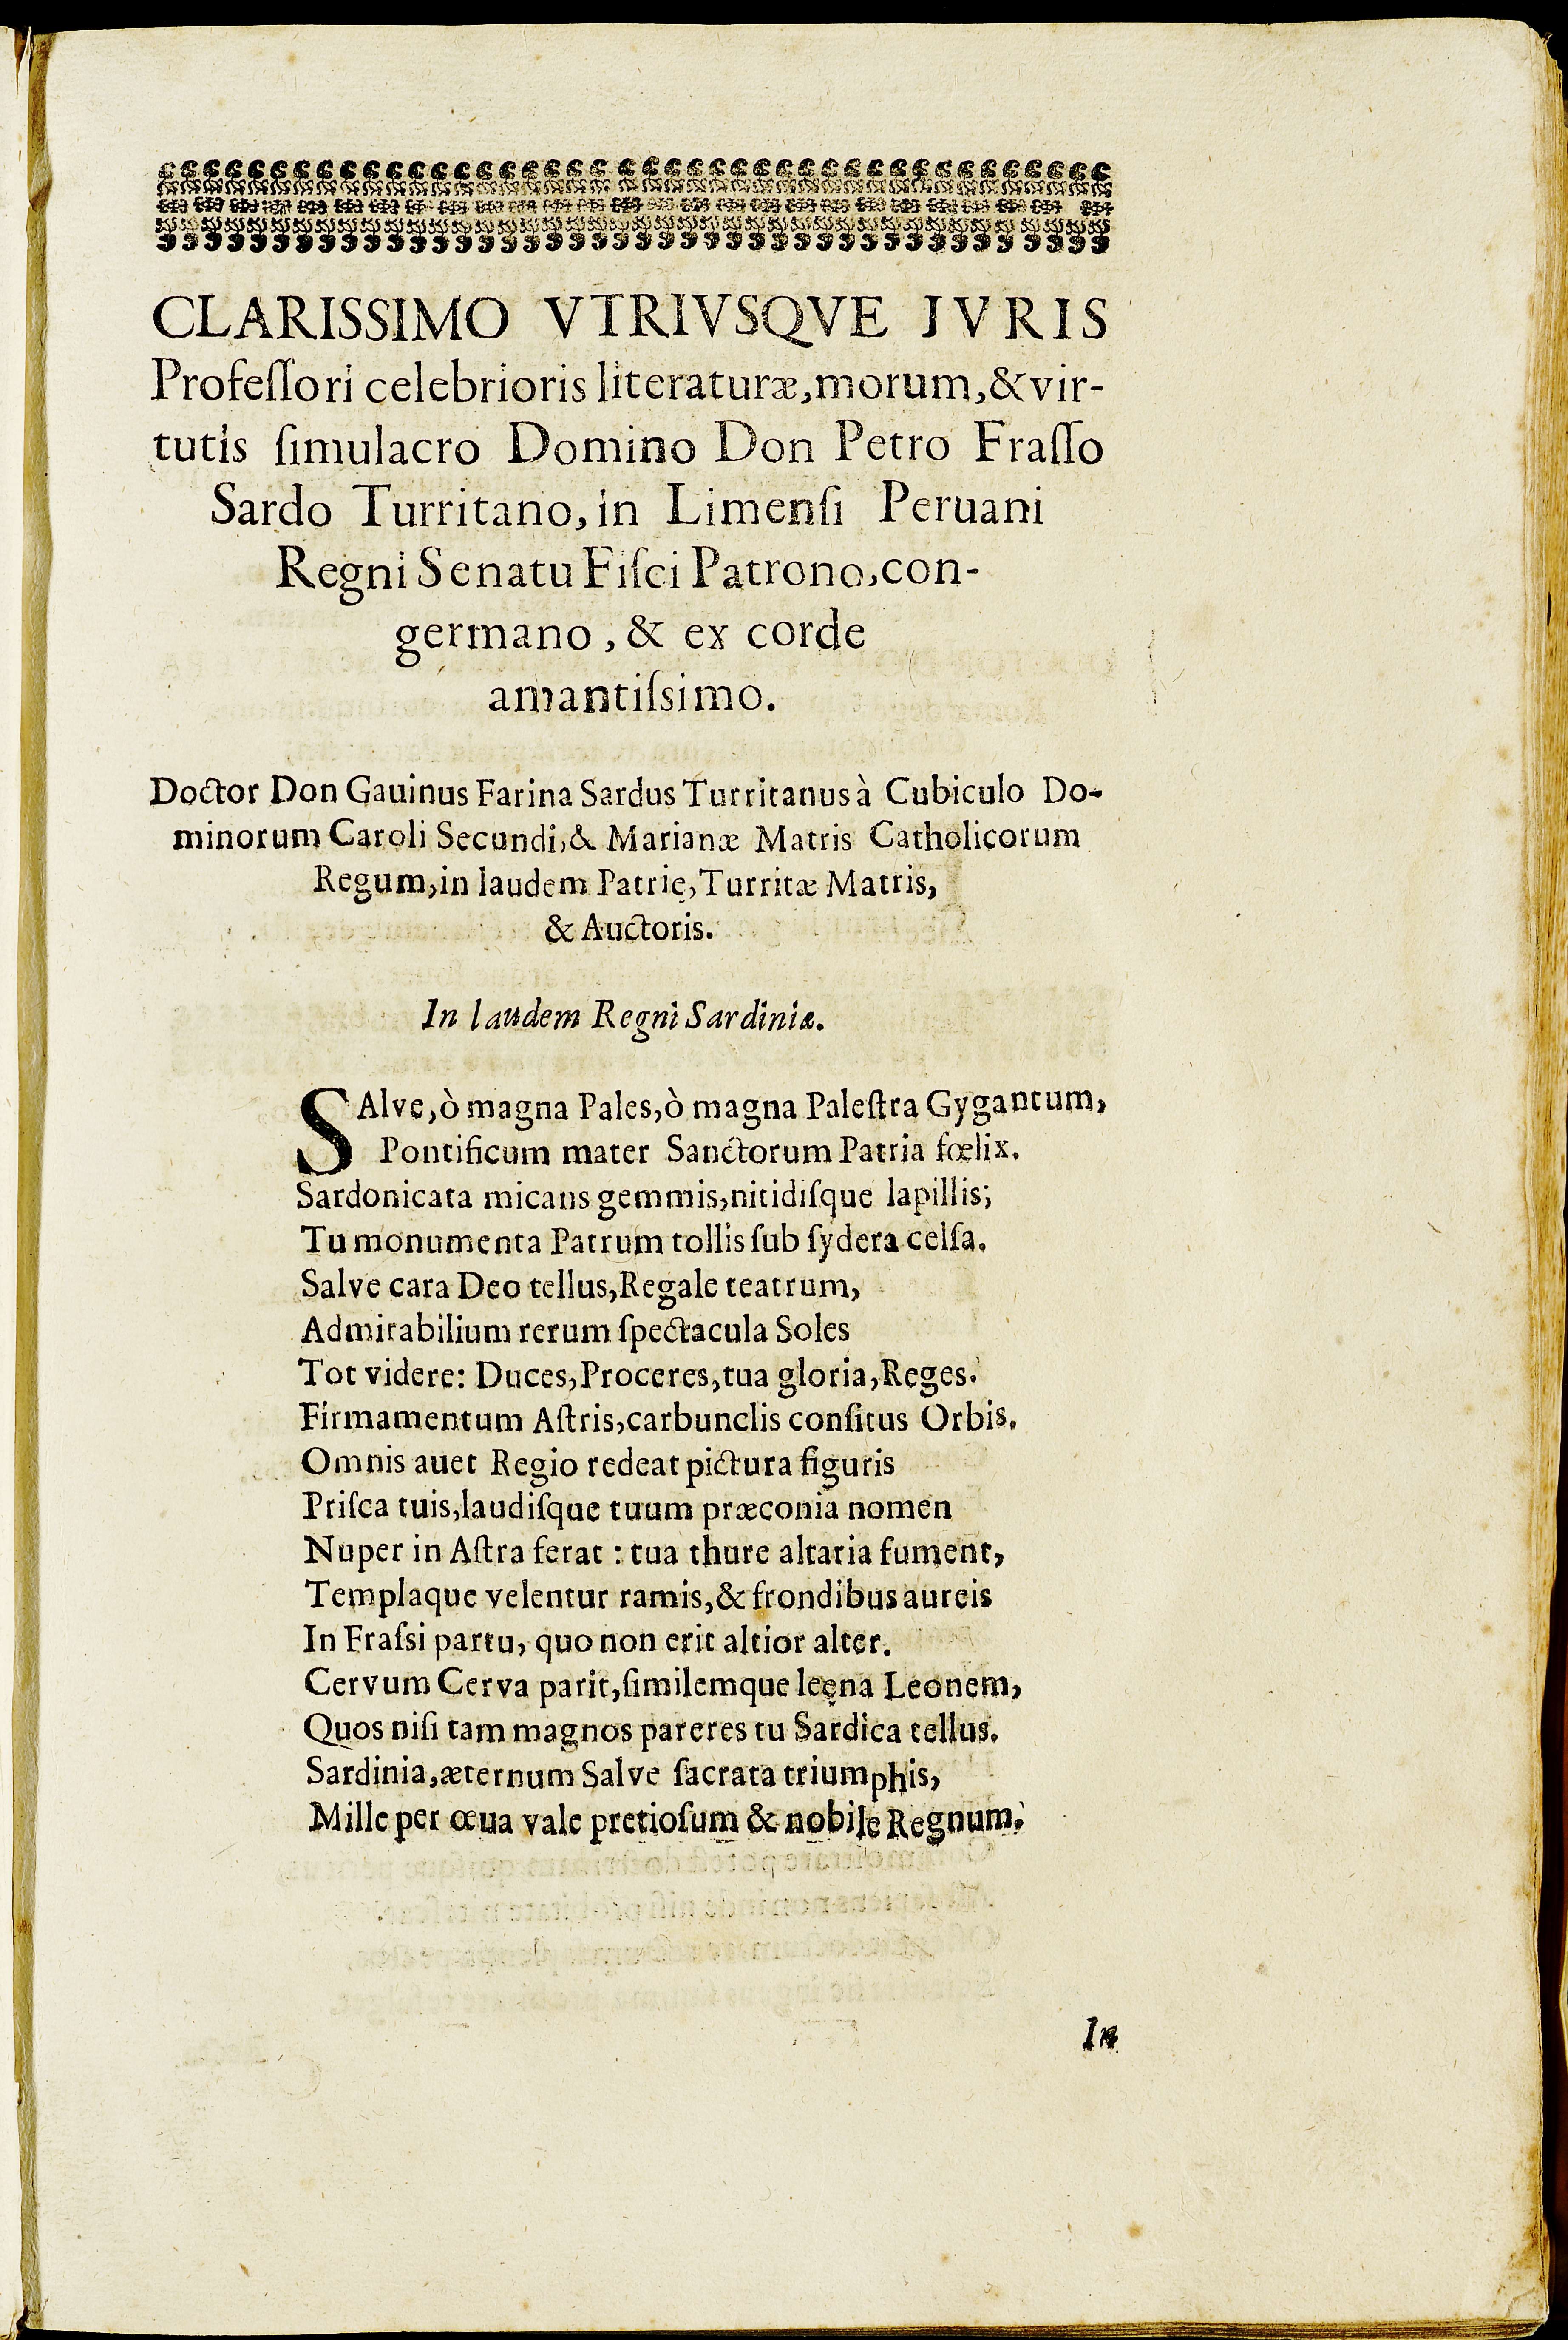 CLARISSIMO VTRIVSQVE IVRIS
Profeſſori celebrioris literaturæ, morum, & vir-
tutis ſimulacro Domino Don Petro Fraſſo
Sardo Turritano, in Limenſi Peruani
Regni Senatu Fiſci Patrono, con-
germano, & ex corde
amantiſsimo.
Doctor Don Gauinus Farina Sardus Turritanus à Cubiculo Do-
minorum Caroli Secundi, & Marianæ Matris Catholicorum
Regum, in laudem Patrię, Turritæ Matris,
& Auctoris.
In laudem Regni Sardiniæ.
SAlve, ò magna Pales, ò magna Paleſtra Gygantum,
Pontificum mater Sanctorum Patria fœlix.
Sardonicata micans gemmis, nitidiſque lapillis;
Tu monumenta Patrum tollis ſub ſydera celſa.
Salve cara Deo tellus, Regale teatrum,
Admirabilium rerum ſpectacula Soles
Tot videre: Duces, Proceres, tua gloria, Reges.
Firmamentum Aſtris, carbunclis conſitus Orbis.
Omnis auet Regio redeat pictura figuris
Priſca tuis, laudiſque tuum præconia nomen
Nuper in Aſtra ferat : tua thure altaria fument,
Templaque velentur ramis, & frondibus aureis
In Fraſsi partu, quo non erit altior alter.
Cervum Cerva parit, ſimilemque leęna Leonem,
Quos niſi tam magnos pareres tu Sardica tellus.
Sardinia, æternum Salve ſacrata triumphis,
Mille per œua vale pretioſum & nobile Regnum.
In